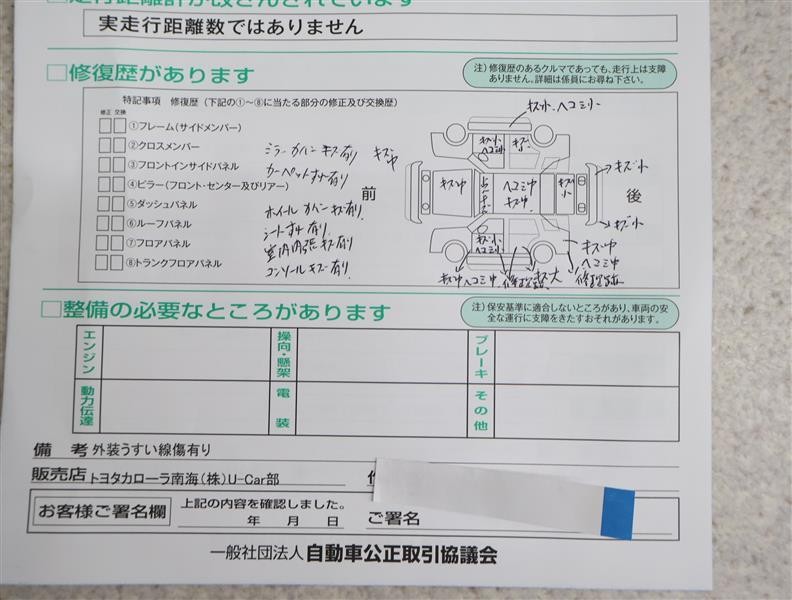 □走行距離計が改ざんされています
実走行距離数ではありません
□修復歴があります
注）修復歴のあるクルマであっても、走行上は支障
ありません。詳細は係員にお尋ね下さい。
特記事項 修復歴（下記の①〜⑧に当たる部分の修正及び交換歴）
修正 交換
①フレーム（サイドメンバー）
②クロスメンバー
③フロントインサイドパネル
④ピラー（フロント・センター及びリアー）
⑤ダッシュパネル
⑥ルーフパネル
⑦フロアパネル
⑧トランクフロアパネル
ミラーカバーキズ有り キズ中
カーペットすれ有り
ホイールカバーキズ有り
シートすれ有り
室内内張キズ有り
コンソールキズ有り
前
後
キズ小、ヘコミ小
キズ小
ヘコミ中
キズ小
キズ中
ヘコミ中
キズ中
キズ小
キズ小
キズ小
キズ小
ヘコミ中
キズ中
ヘコミ中
修理跡
キズ中
ヘコミ中
キズ大
□整備の必要なところがあります
注）保安基準に適合しないところがあり、車両の安
全な運行に支障をきたすおそれがあります。
エンジン
操向・懸架
ブレーキ
動力伝達
電装
その他
備 考 外装うすい線傷有り
販売店 トヨタカローラ南海（株）U-Car部
お客様ご署名欄
上記の内容を確認しました。
年 月 日
ご署名
一般社団法人 自動車公正取引協議会